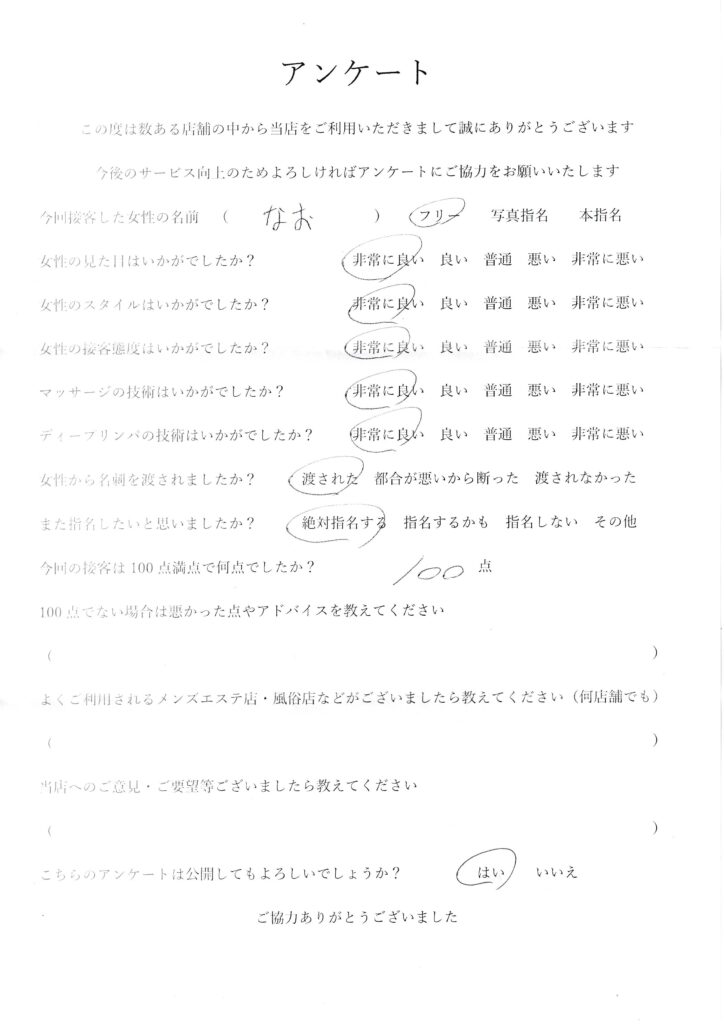 アンケート
この度は数ある店舗の中から当店をご利用いただきまして誠にありがとうございます
今後のサービス向上のためよろしければアンケートにご協力をお願いいたします
今回接客した女性の名前 ( なお ) フリー 写真指名 本指名
女性の見た目はいかがでしたか? 非常に良い 良い 普通 悪い 非常に悪い
女性のスタイルはいかがでしたか? 非常に良い 良い 普通 悪い 非常に悪い
女性の接客態度はいかがでしたか? 非常に良い 良い 普通 悪い 非常に悪い
マッサージの技術はいかがでしたか? 非常に良い 良い 普通 悪い 非常に悪い
ディープリンパの技術はいかがでしたか? 非常に良い 良い 普通 悪い 非常に悪い
女性から名刺を渡されましたか? 渡された 都合が悪いから断った 渡されなかった
また指名したいと思いましたか? 絶対指名する 指名するかも 指名しない その他
今回の接客は100点満点で何点でしたか? 100 点
100点でない場合は悪かった点やアドバイスを教えてください
( )
よくご利用されるメンズエステ店・風俗店などがございましたら教えてください(何店舗でも)
( )
当店へのご意見・ご要望等ございましたら教えてください
( )
こちらのアンケートは公開してもよろしいでしょうか? はい いいえ
ご協力ありがとうございました